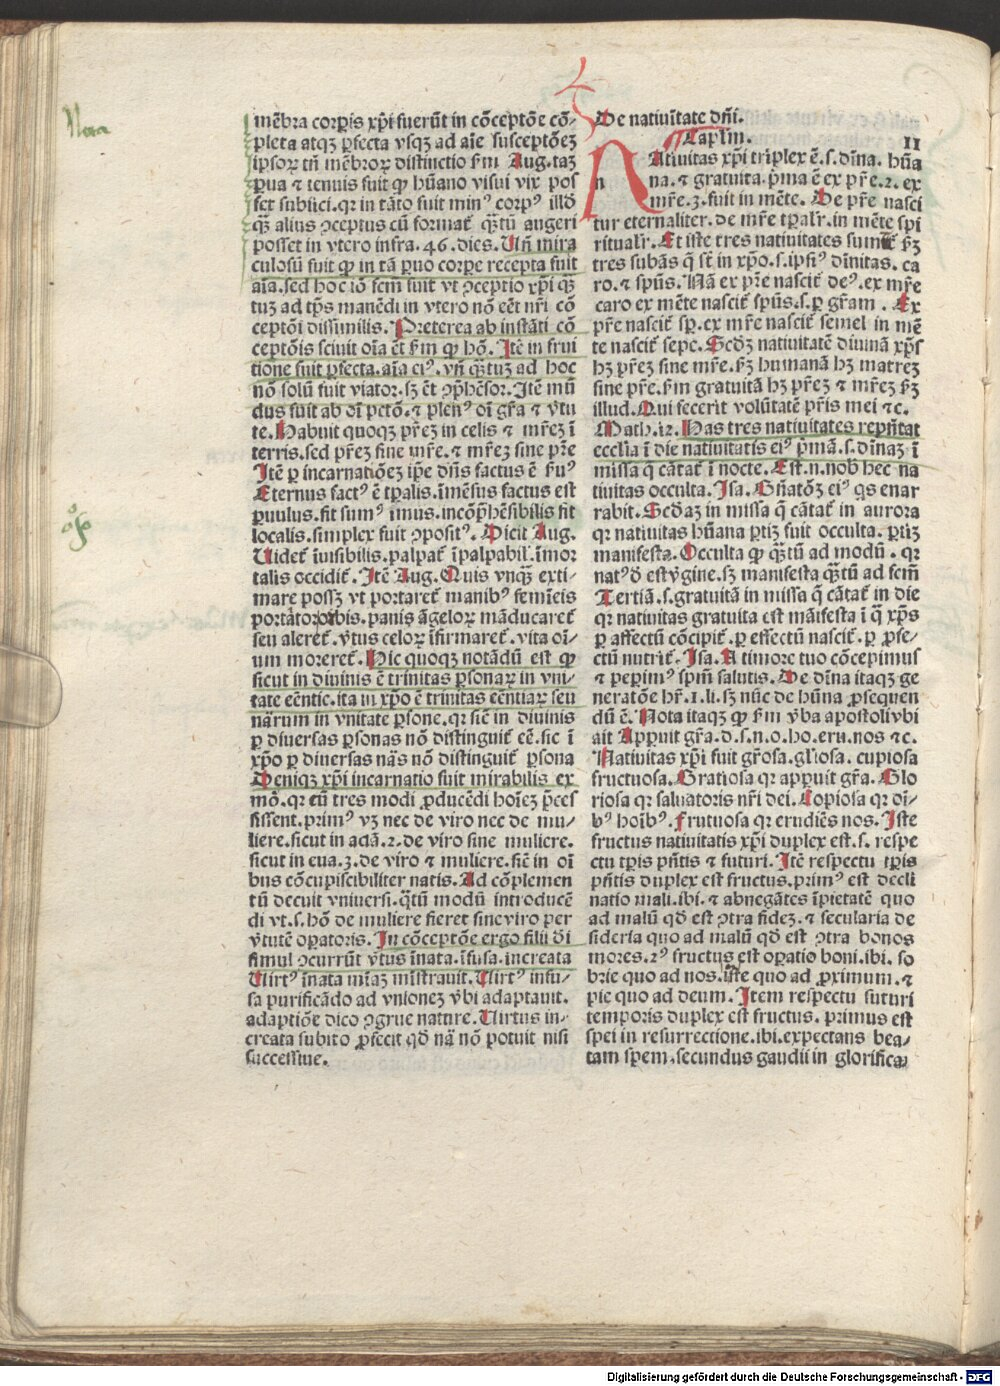 Nota
mēbra corꝑis xp̄i fuerūt in cōceptōe cō⸗
pleta atqꝫ ꝑfecta vsqꝫ ad aīe susceptōeꝫ
ipsoꝝ tn̄ mēbroꝝ distinctio ẜm Aug. taꝫ
ꝑua ⁊ tenuis fuit ꝙ hūano visui vix pos
set subiici. qꝛ in tāto fuit minꝰ corpꝰ illḋ
qƺ̄ alius ↄceptus cū format᷑ qƺ̄tū augeri
posset in vtero infra .46. dies. Vn̄ mira
culosū fuit ꝙ in tā ꝑuo corꝑe recepta fuit
aīa. sed hoc iō scm̄ fuit vt ↄceptio xp̄i qƺ̄
tuꝫ ad tp̄s manēdi in vtero nō eēt nr̄i cō
ceptōi dissimilis. Preterea ab instāti cō
ceptōis sciuit oīa ēt ẜm ꝙ hō. Itē in frui
tione fuit ꝑfecta. aīa eiꝰ. vn̄ qƺ̄tuꝫ ad hoc
nō solū fuit viator. sꝫ ēt ↄp̄hēsor. Itē mū
dus fuit ab oī pctō. ⁊ plenꝰ oī gr̄a ⁊ v̄tu
te. Habuit quoqꝫ pr̄eꝫ in celis ⁊ mr̄eꝫ ī
terris. sed pr̄eꝫ sine mr̄e. ⁊ mr̄eꝫ sine pr̄e
Itē ꝑ incarnatiōeꝫ ip̄e dn̄s factus ē ẜuꝰ
Eternus factꝰ ē tꝑalis. īmēsus factus est
ꝑuulus. fit sumꝰ imus. incōp̄hēsibilis fit
localis. simplex fuit ↄpositꝰ. Dicit Aug.
Videt᷑ īuisibilis. palpat᷑ īpalpabil᷑. īmor
talis occidit᷑. Itē Aug. Quis vnqƺ̄ exti⸗
mare possꝫ vt portaret᷑ manibꝰ femīeis
portātor orbis. panis āgeloꝝ māducaret᷑
seu aleret᷑. v̄tus celoꝝ īfirmaret᷑. vita oī⸗
um moreret᷑. Hic quoqꝫ notādū est ꝙ
sicut in diuinis ē trinitas ꝑsonaꝝ in vni⸗
tate eēntie. ita in xp̄o ē trinitas eēntiaꝝ seu
naꝝrum in vnitate ꝑsone. qꝛ sic̄ in diuinis
ꝑ diuersas ꝑsonas nō distinguit᷑ eē. sic ī
xp̄o ꝑ diuersas nās nō distinguit᷑ ꝑsona
Deniqꝫ xp̄i incarnatio fuit mirabilis ex
mō. qꝛ cū tres modi ꝓducēdi hoīeꝫ p̄ces
sissent. primꝰ vꝫ nec de viro nec de mu⸗
liere. sicut in adā. 2. de viro sine muliere.
sicut in eua. 3. de viro ⁊ muliere. sic̄ in oī
bus cōcupiscibiliter natis. Ad cōplemen
tū decuit vniuersi. qƺ̄tū modū introducē
di vt. s. hō de muliere fieret sine viro per
v̄tutē oꝑatoris. In cōceptōe ergo filii dī
simul ↄcurrūt v̄tus īnata. īfusa. increata
Virtꝰ īnata mīaꝫ mīstrauit. Virtꝰ infu⸗
sa purificādo ad vnionez v̄bi adaptauit.
adaptiōe dico ↄgrue nature. Virtus in⸗
creata subito ꝑfecit qḋ nā nō potuit nisi
successiue.
De natiuītate dn̄i.
Caplm̄. II
Natiuitas xp̄i triplex ē. s. dīna. hūa
n
na. ⁊ gratuita. p̄ma ē ex pr̄e. 2. ex
mr̄e. 3. fuit in mēte. De pr̄e nasci
tur eternaliter. de mr̄e tꝑalr̄. in mēte spi
ritualr̄. Et iste tres natiuitates sumūt᷑ ẜꝫ
tres subās q̄ st̄ in xp̄o. s. ipsiꝰ dīnitas. ca
ro. ⁊ spūs. Nā ex pr̄e nascit᷑ deꝰ. ex mr̄e
caro ex mēte nascit᷑ spūs. s. ꝑ gr̄am. Ex
pr̄e nascit᷑ sꝑ. ex mr̄e nascit᷑ semel in mē
te nascit᷑ sepe. Scḋꝫ natiuitatē diuinā xp̄s
hꝫ pr̄eꝫ sine mr̄e. ẜꝫ humanā hꝫ matreꝫ
sine pr̄e. ẜm gratuitā hꝫ pr̄eꝫ ⁊ mr̄eꝫ ẜꝫ
illud. Qui fecerit volūtatē pr̄is mei ⁊c.
Math. 12. Has tres natiuitates rep̄ntat
ecclīa ī die natiuitatis eiꝰ p̄mā. s. dīnaꝫ ī
missa q̄ cātat᷑ ī nocte. Est. n. nob̄ hec na
tiuitas occulta. Isa. Gn̄atōꝫ eiꝰ qs enar
rabit. Scḋaꝫ in missa q̄ cātat᷑ in aurora
qꝛ natiuitas hūana ꝑtiꝫ fuit occulta. ꝑtiꝫ
manifesta. Occulta ꝙ qƺ̄tū ad modū. qꝛ
natꝰ ḋ est v̄gine. sꝫ manifesta qƺ̄tū ad fcm̄
Tertiā. s. gratuitā in missa q̄ cātat᷑ in die
qꝛ natiuitas gratuita est māifesta ī q̄ xp̄s
ꝑ affectū cōcipit᷑. ꝑ effectū nascit᷑. ꝑ ꝓfe⸗
ctū nutrit᷑. Isa. A timore tuo cōcepimus
⁊ peperimꝰ spm̄ salutis. De dīna itaqꝫ ge
neratōne hr̄. 1. li. sꝫ nūc de hūna ꝓsequen
dū ē. Nota itaqꝫ ꝙ ẜm v̄ba apostoli vbi
ait Apꝑuit gr̄a. d. s. n. o. ho. eru. nos ⁊c.
Natiuitas xp̄i fuit gr̄osa. gl̄iosa. cupiosa
fructuosa. Gratiosa qꝛ apꝑuit gr̄a. Glo
riosa qꝛ saluatoris nr̄i dei. Copiosa qꝛ oī⸗
bꝰ hoībꝰ. Frutuosa qꝛ erudiēs nos. Iste
fructus natiuitatis xp̄i duplex est. s. respe
ctu tꝑis pn̄tis ⁊ futuri. Itē respectu tꝑis
pn̄tis duplex est fructus. primꝰ est decli
natio mali. ibi. ⁊ abnegātes īpietatē quo
ad malū qḋ est ↄtra fideꝫ. ⁊ secularia de
sideria quo ad malū qḋ est ↄtra bonos
mores. 2ꝰ fructus est oꝑatio boni. ibi. so
brie quo ad nos. iuste quo ad ꝓximum. ⁊
pie quo ad deum. Item respectu futuri
temporis duplex est fructus. primus est
spei in resurrectione. ibi. expectans bea⸗
tam spem. secundus gaudii in glorifica⸗
Digitalisierung gefördert durch die Deutsche Forschungsgemeinschaft - DFG